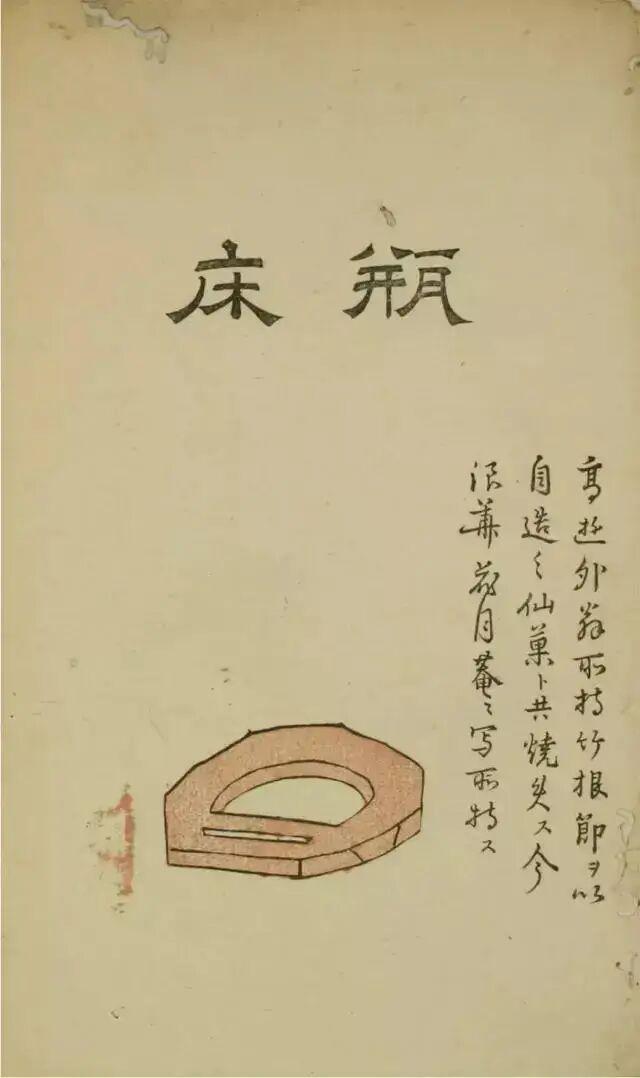 瓶床
高遊外翁所持竹根節ヲ以
自造之仙菓ト共焼失ス今
浪華花月菴之写所持ス